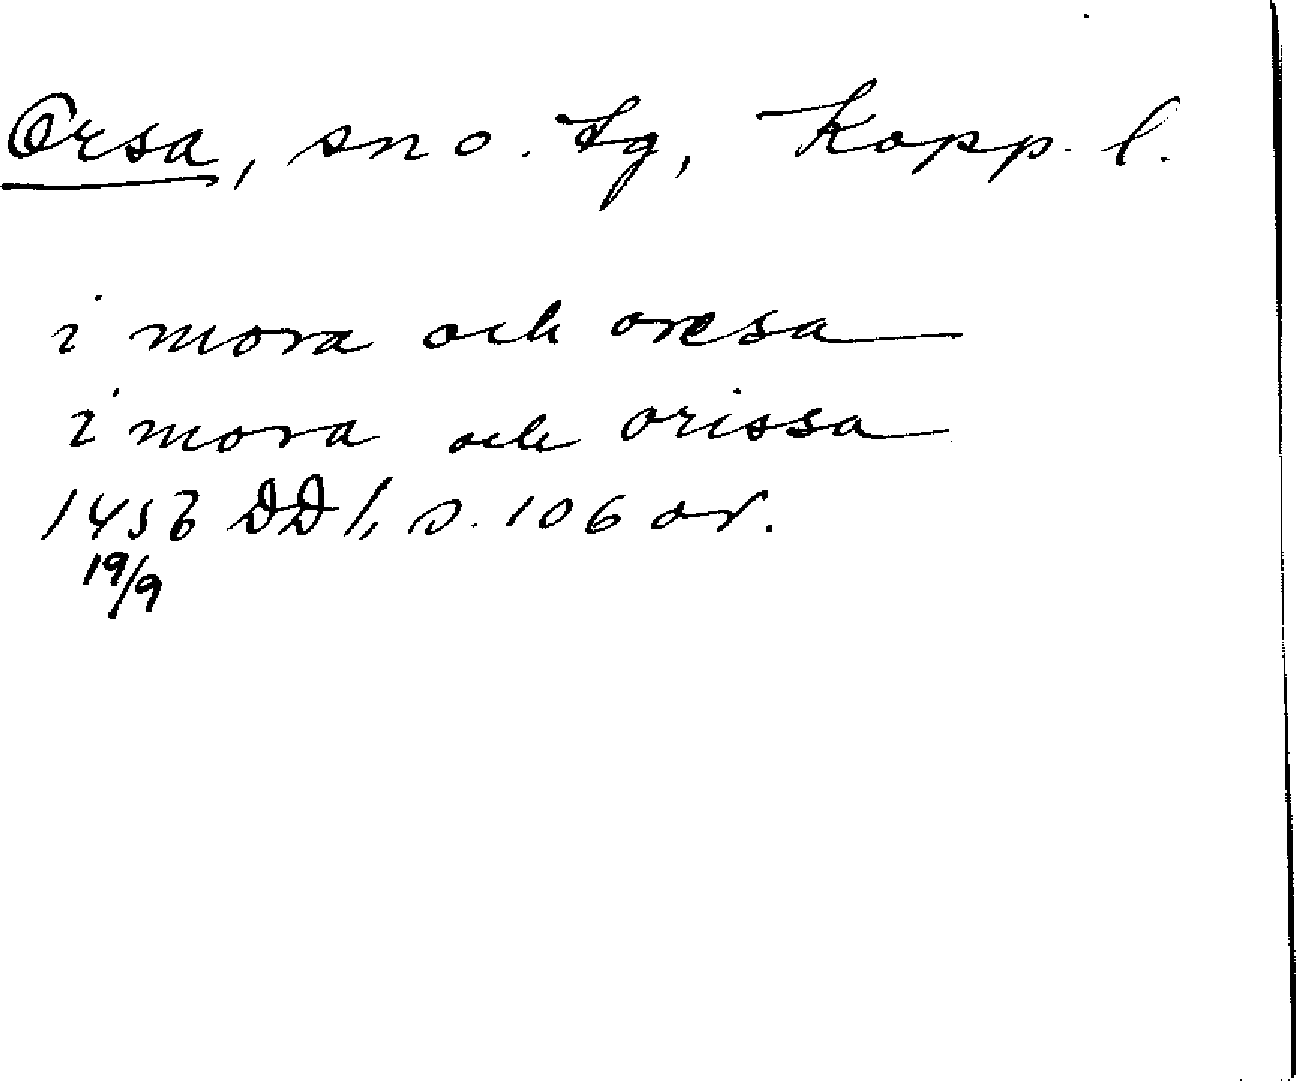 Orsa, sn o. tg, Kopp. l.
i mora och oresa
i mora och orissa
1456 DD 1, s. 106 or.
19/9